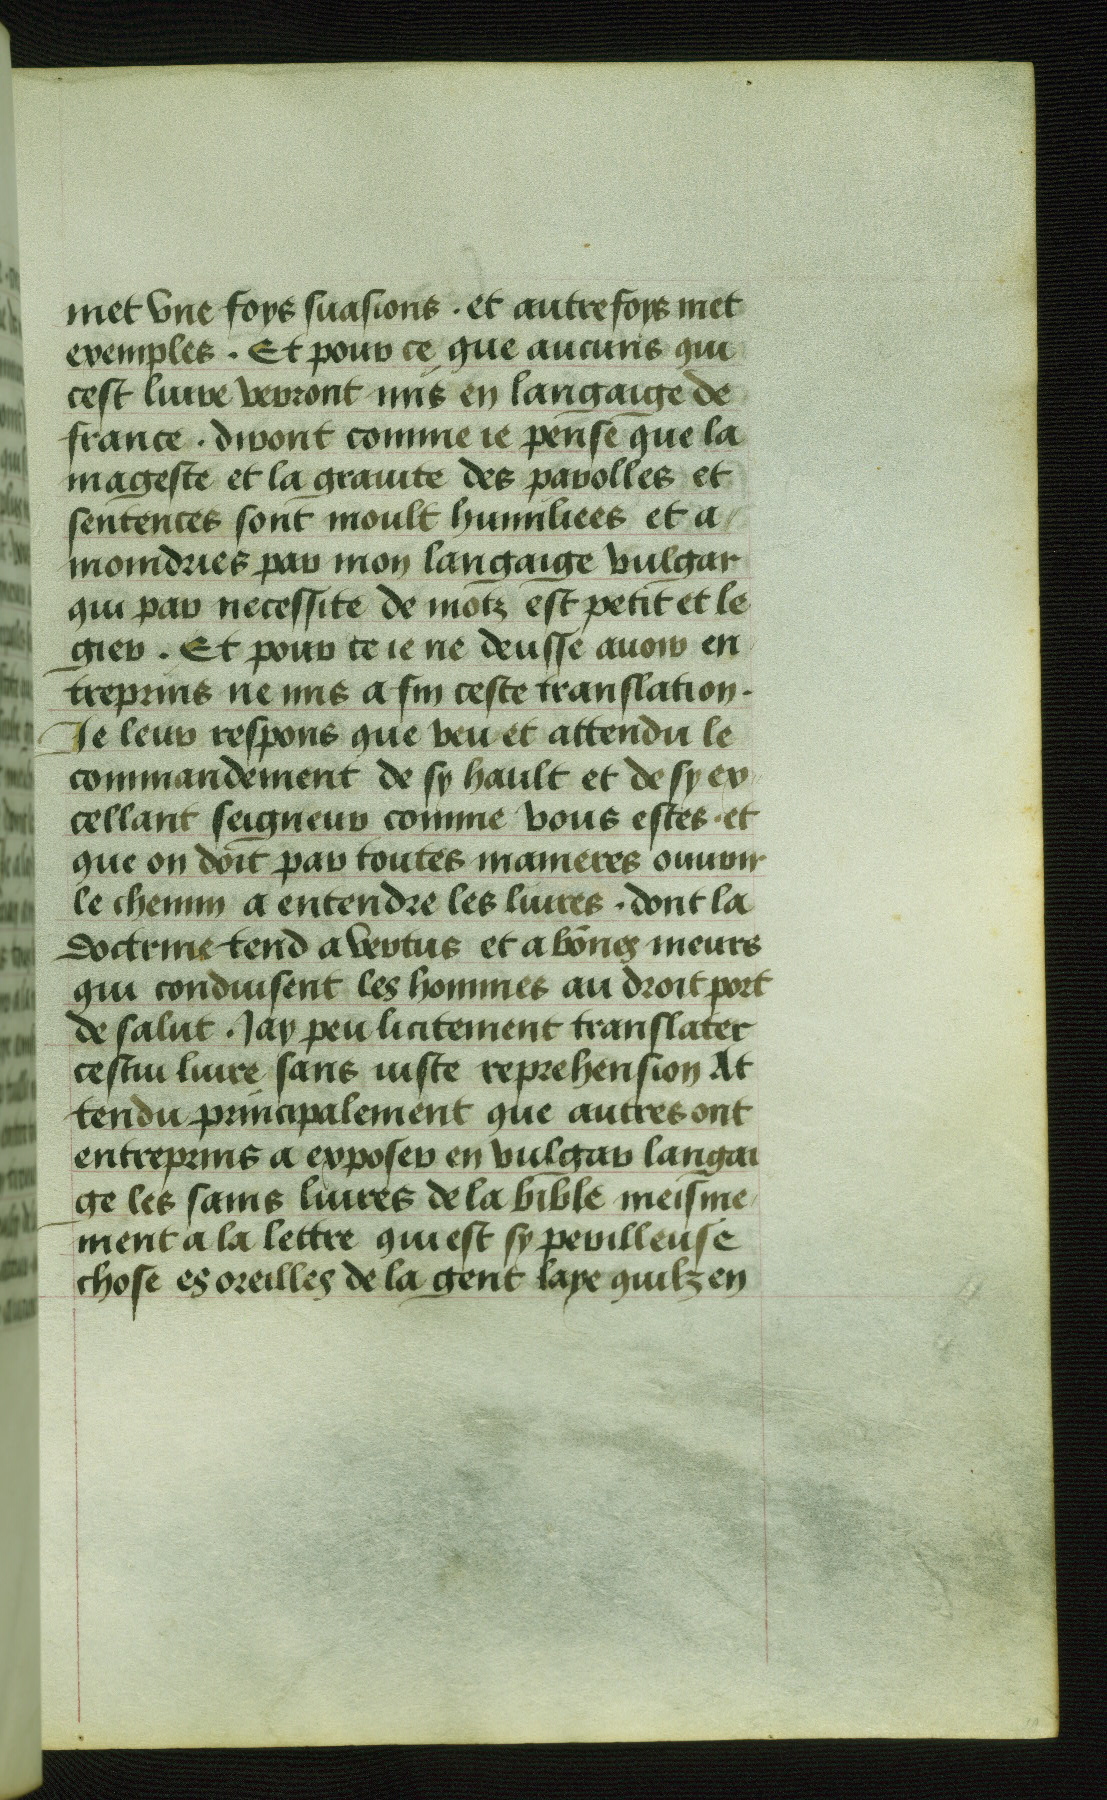 met vne foys suasions . et autrefoys met
exemples . Et pour ce que aucuns qui
cest liure verront mis en langaige de
france . diront comme ie pense que la
mageste et la grauite des parolles et
sentences sont moult humiliees et a
moindries par mon langaige vulgar
qui par necessite de motz est petit et le
gier . Et pour ce ie ne deusse auoir en
treprins ne mis a fin ceste translation .
Je leur respons que veu et attendu le
commandement de sy hault et de sy ex
cellant seigneur comme vous estes . et
que on doit par toutes manieres ouurir
le chemin a entendre les liures . dont la
doctrine tend a vertus et a bōnes meurs
qui conduisent les hommes au droit port
de salut . Jay peu licitement translater
cestui liure sans iuste reprehension At
tendu principalement que autres ont
entreprins a exposer en vulgar langai
ge les sains liures de la bible meisme
ment a la lettre qui est sy perilleuse
chose es oreilles de la gent laye quilz en